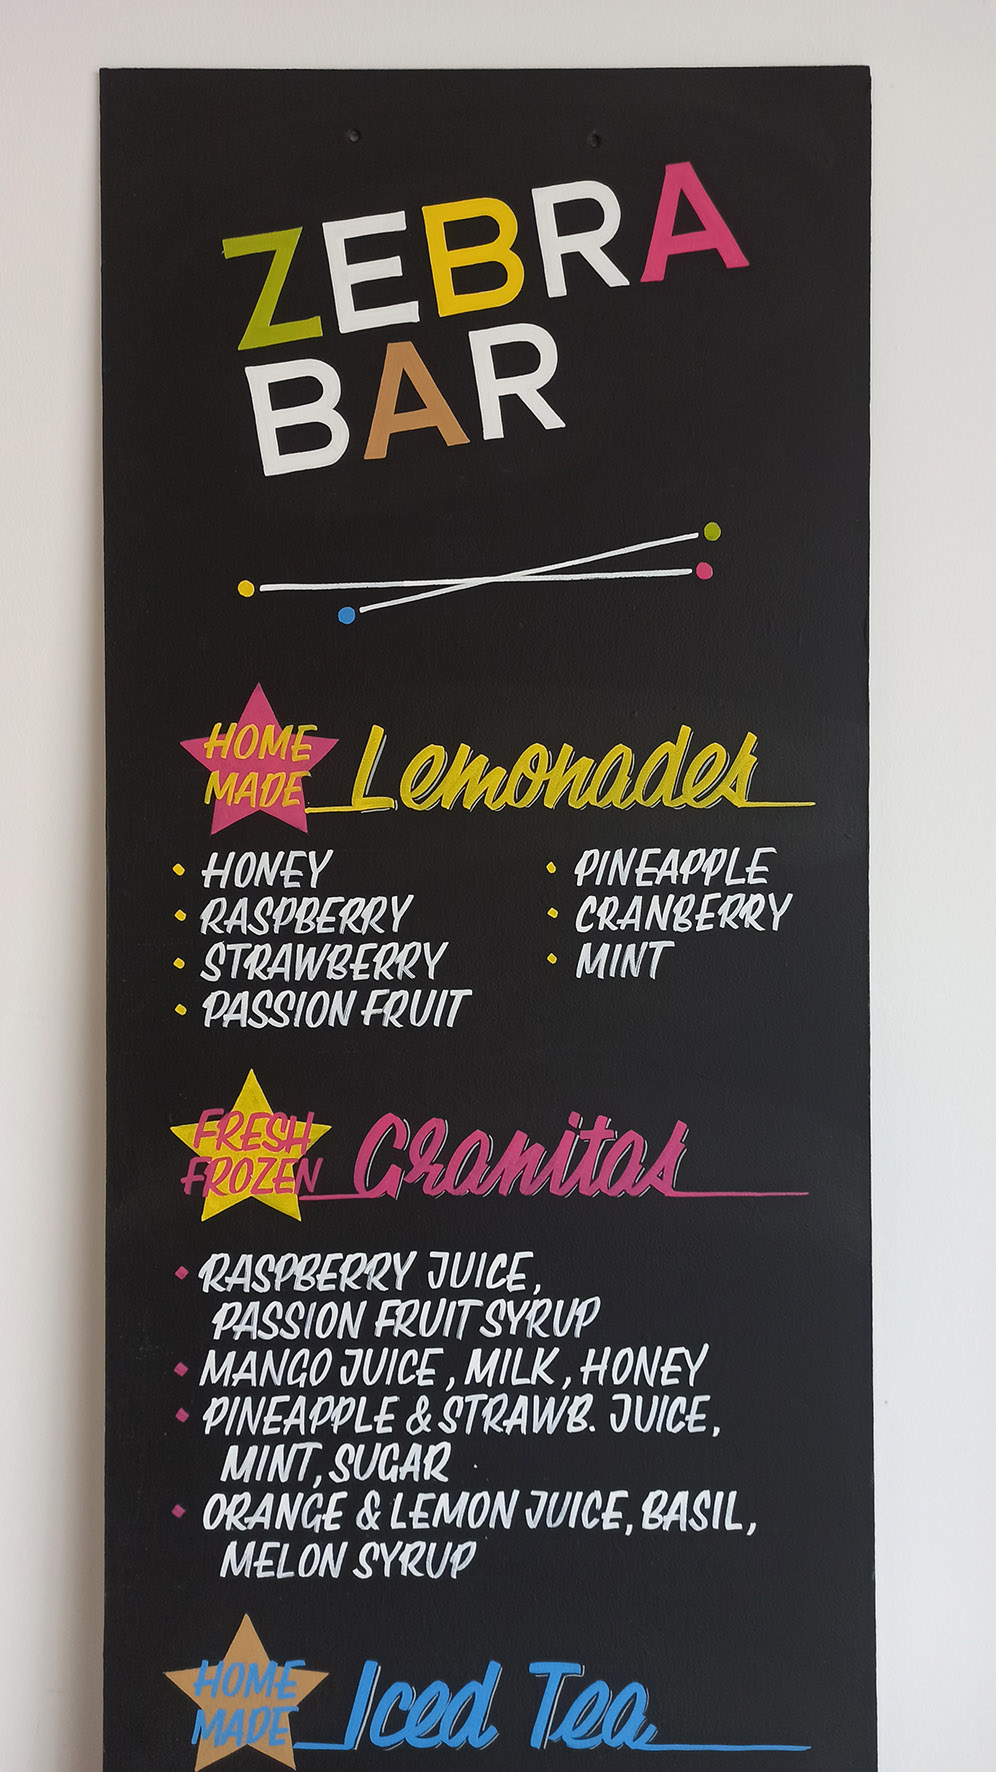 ZEBRA
BAR
HOME
MADE
Lemonades
• HONEY
• RASPBERRY
• STRAWBERRY
• PASSION FRUIT
• PINEAPPLE
• CRANBERRY
• MINT
FRESH
FROZEN
Granitas
• RASPBERRY JUICE,
PASSION FRUIT SYRUP
• MANGO JUICE, MILK, HONEY
• PINEAPPLE & STRAWB. JUICE,
MINT, SUGAR
• ORANGE & LEMON JUICE, BASIL,
MELON SYRUP
HOME
MADE
Iced Tea